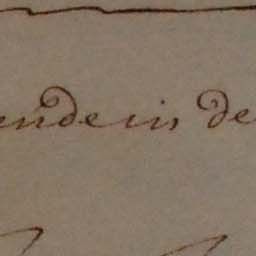 endein de